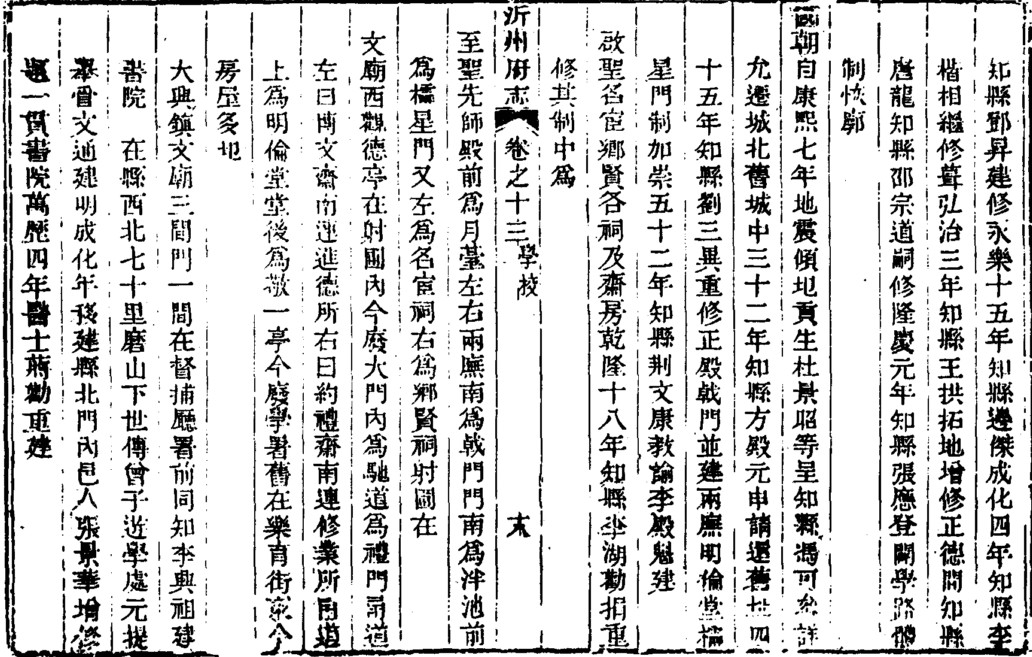 知縣鄧昇建修永樂十五年知縣邊傑成化四年知縣李
楷相繼修葺弘治三年知縣王拱拓地增修正德間知縣
唐龍知縣邵宗道嗣修隆慶元年知縣張應登闢學路體
制恢廓
國朝自康熙七年地震傾圮貢生杜景昭等呈知縣馮可參詳
允遷城北舊城中三十二年知縣方殿元申請還舊址四
十五年知縣劉三異重修正殿戟門並建兩廡明倫堂櫺
星門制加崇五十二年知縣荆文康教諭李殿魁建
啟聖名宦鄉賢各祠及齋房乾隆十八年知縣李湖勸捐重
修其制中為
沂州府志 卷之十三 學校
至聖先師殿前為月臺左右兩廡南為戟門門南為泮池前
為櫺星門又左為名宦祠右為鄉賢祠射圃在
文廟西觀德亭在射圃內今廢大門內為馳道為禮門甬道
左曰博文齋南連進德所右曰約禮齋南連修業所甬道
上為明倫堂堂後為敬一亭今廢學署舊在樂育街東今
房屋多圮
大興鎮文廟三間門一間在督捕廳署前同知李興祖建
書院 在縣西北七十里磨山下世傳曾子遊學處元提
舉曾文通建明成化年移建縣北門內邑人張景華增修
題一貫書院萬歷四年醫士蔣勸重建